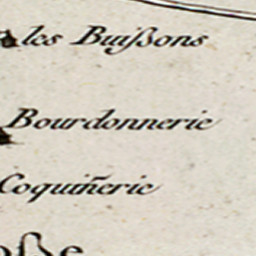 les Buißons
Bourdonnerie
Coquiñerie